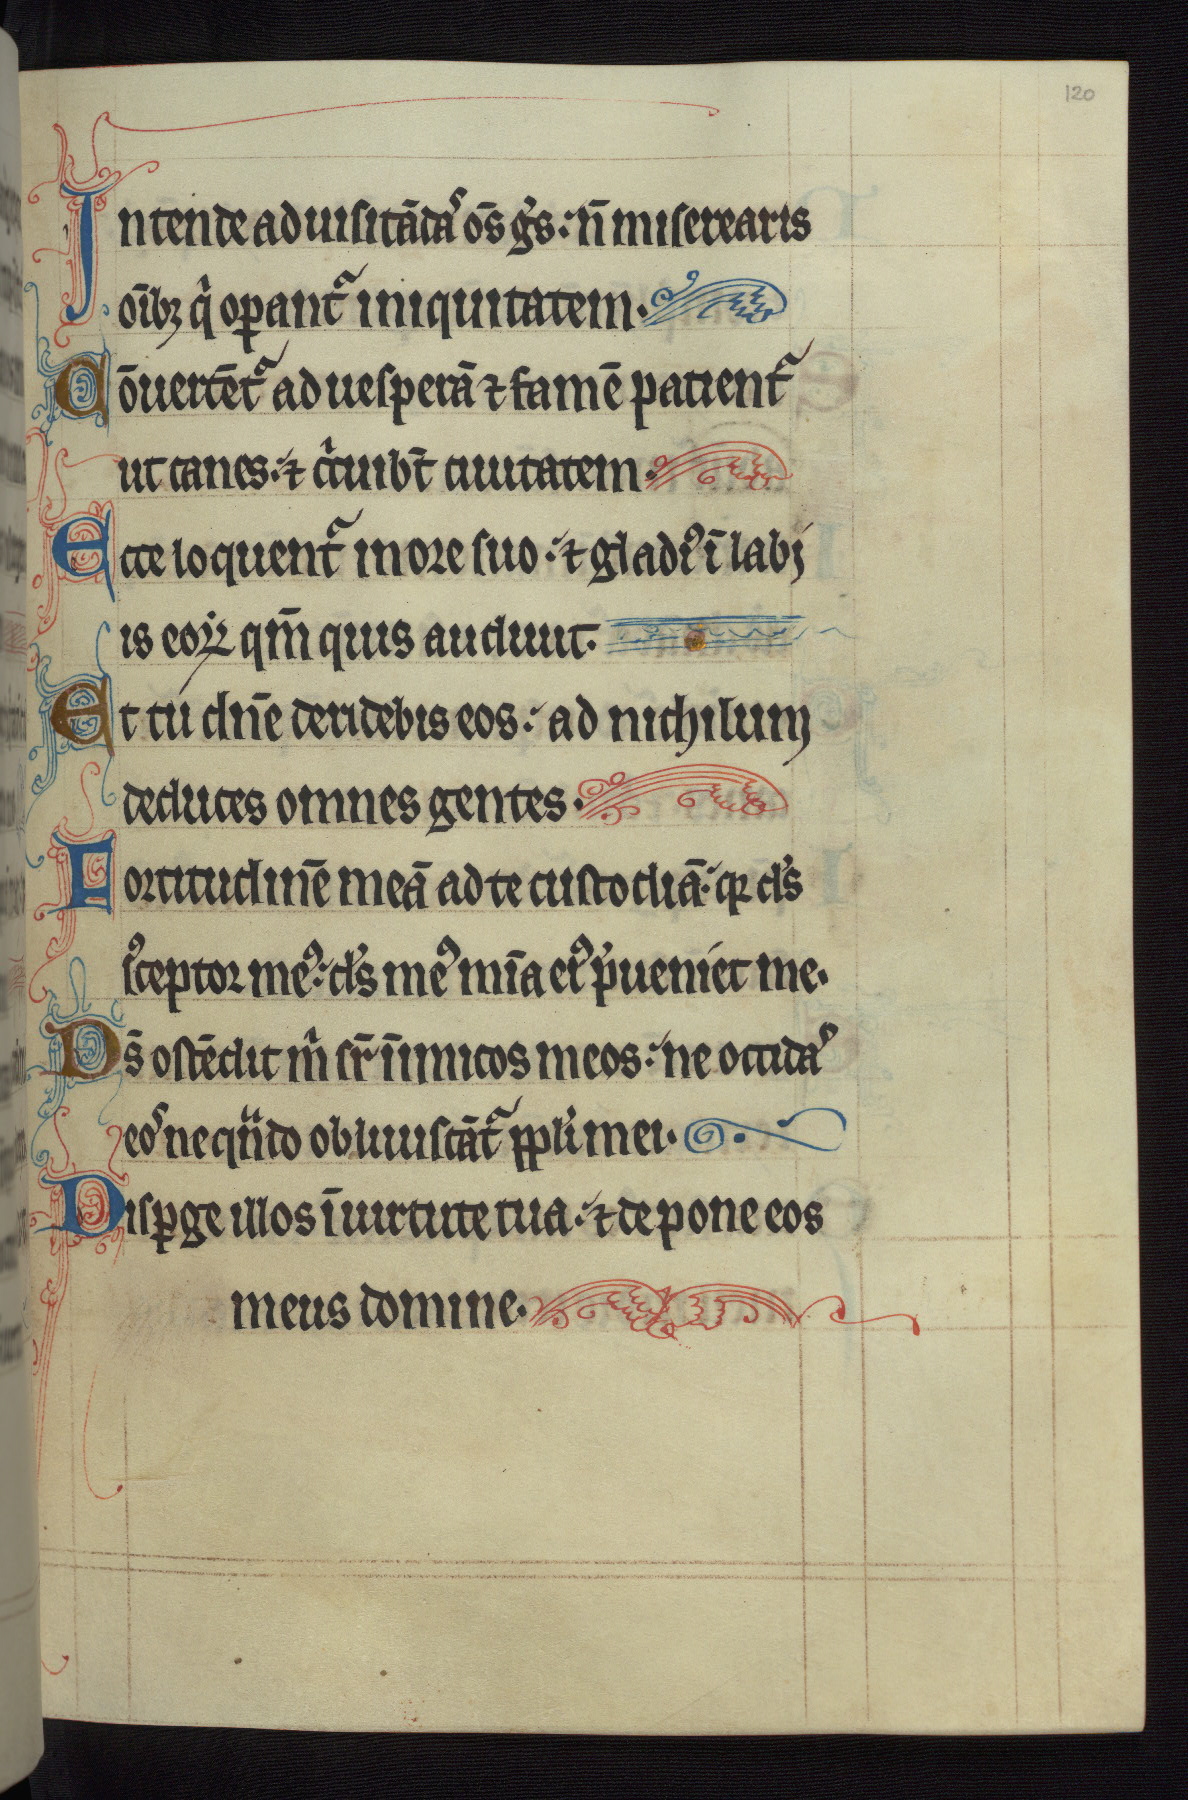 120
Intende ad uisitādas oēs gēs: nō miserearis
oībꝫ qͥ oꝑantᷣ iniquitatem.
Cōuertētᷣ ad uesperā ⁊ famē patientᷣ
ut canes: ⁊ cͥcuibt̄ ciuitatem.
Ecce loquentᷣ in ore suo: ⁊ gladiꝰ ī labi
is eoꝝ qm̄ quis audiuit.
Et tu dn̄e deridebis eos: ad nichilum
deduces omnes gentes.
Fortitudinē meā ad te custodiā: qꝛ ds̄
sꝰceptor meꝰ: ds̄ meꝰ mīa eiꝰ p̄ueniet me.
Ds̄ ostēdit mͥ sr̄ īnimicos meos: ne occidas
eos ne qn̄do obliuiscātᷣ ppl̄i mei.
Disꝑge illos ī uirtute tua: ⁊ depone eos
meus domine.